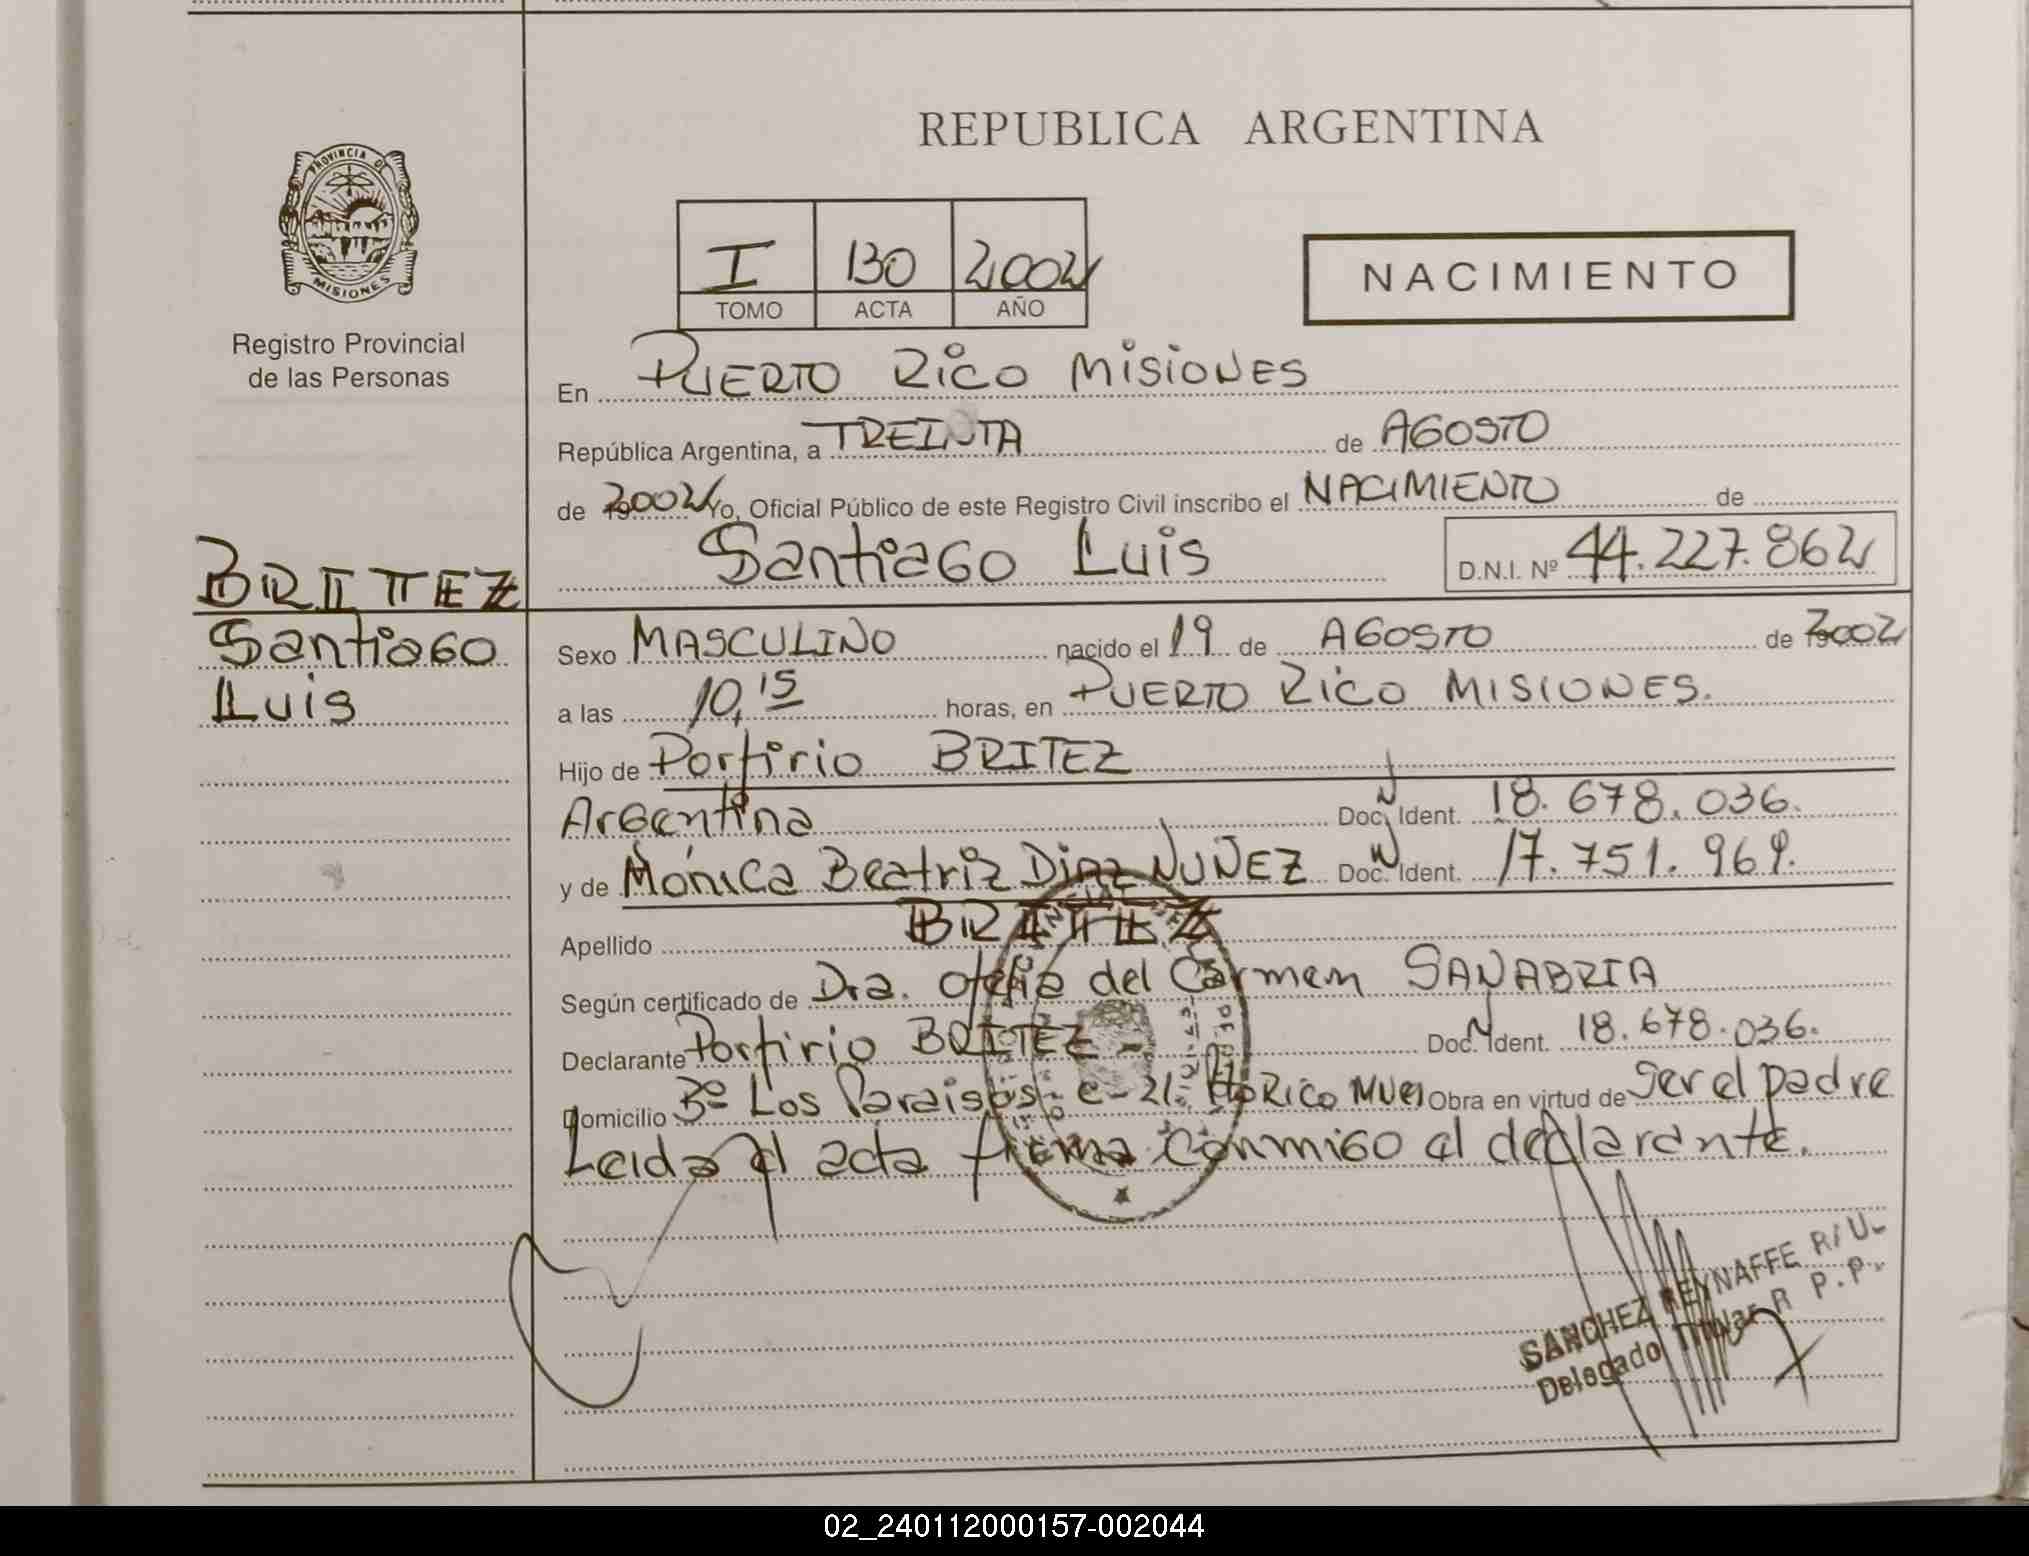 REPUBLICA ARGENTINA
PROVINCIA DE
MISIONES
Registro Provincial
de las Personas
I 130 2002
TOMO ACTA AÑO
NACIMIENTO
En PUERTO RICO MISIONES
República Argentina, a TREINTA de AGOSTO
de 2002 Yo, Oficial Público de este Registro Civil inscribo el NACIMIENTO de
Santiago Luis D.N.I. Nº 44.227.862
BRITEZ
Santiago
Luis
Sexo MASCULINO nacido el 19 de AGOSTO de 2002
a las 10,15 horas, en PUERTO RICO MISIONES.
Hijo de Porfirio BRITEZ
Argentina Doc. Ident. 18.678.036.
y de Mónica Beatriz DIAZ NUÑEZ Doc. Ident. 17.751.969.
Apellido BRITEZ
Según certificado de Dra. Ofelia del Carmen SANABRIA
Declarante Porfirio BRITEZ - Doc. Ident. 18.678.036.
Domicilio Bº Los Paraisos - C - 21. Pto Rico Obra en virtud de ser el padre
Leida el acta firma conmigo el declarante.
SANCHEZ REYNAFFE RAUL
Delegado Titular R.P.P.
02_240112000157-002044